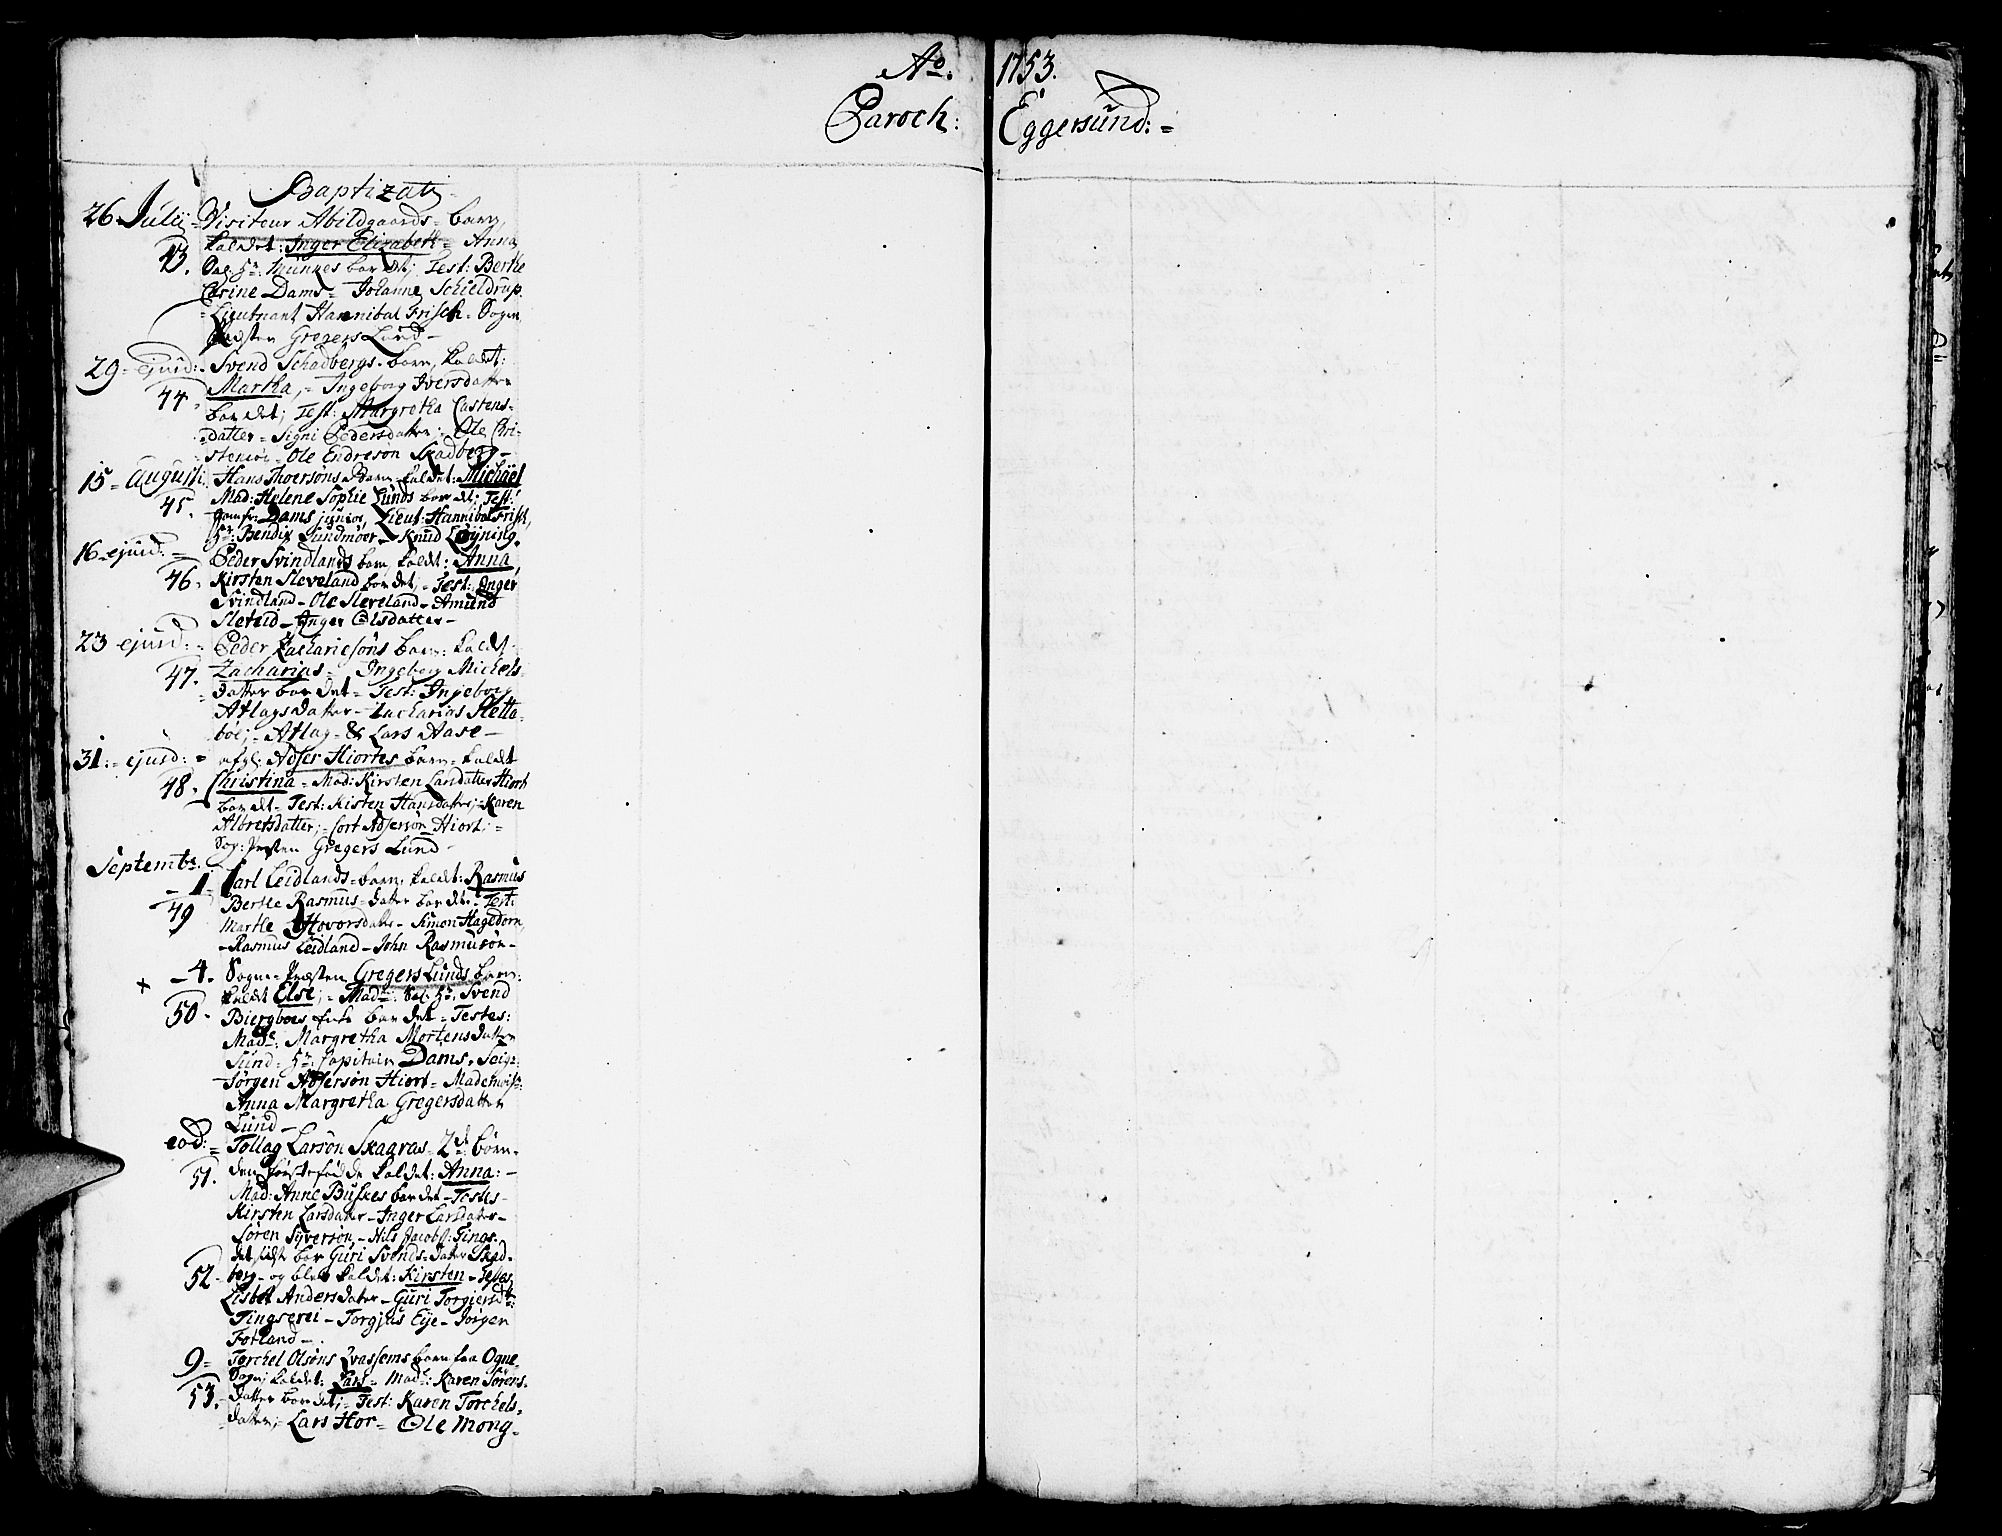 Ao. 1753.
Paroch: Eggersund:=
Baptizati
26 Julij = Visiteur Abildgaards = barn,
kaldet: Inger Elizabeth = Anna
43. Sal: Hr: Munkes bar det; Test: Berthe
Cathrine Dams = Johanne Schieldrup.
Lieutnant Hannibal Frisch = Sogne
Præsten Gregers Lund -
29 = ejusd: Svend Schadbergs = barn, kaldet:
Martha, = Ingeborg Iversdatter
44. bar det; Test: Margretha Castens=
datter = Signi Pedersdatter; = Ole Chri-
stensøn = Ole Endresøn Skadberg -
15 = Augusti. Hans Thoersøns Barn kaldet: Michael
Mad: Helene Sophie Lunds bar det; Test:
45. Jomfr: Dams junior, Lieut: Hannibal Frisch,
Hr: Bendix Sundmøer - Knud Løyning.
16 = ejusd: = Peder Svindlands barn, kaldt: Anna
46. Kirsten Sleveland bar det; - Test: Inger
Svindland - Ole Sleveland - Amund
Sleteid - Inger Olsdatter -
23 ejusd: = Peder Zachariesøns barn: kaldt
47. Zacharias - Ingeborg Michels=
datter bar det = Test: Ingeborg
Atlagsdatter - Zacharias Sletta=
bøe; - Atlag - & Lars Aase -
31: = ejusd: = afgl: Adser Hiortes barn = kaldet
48. Christina = Mad: Kirsten Larsdatter Hiort
bar det = Test: Kisten Hansdatter; - Karen
Albretsdatter; = Cort Adsersøn Hiort; =
Sog: Præsten Gregers Lund -
Septembr.
- 1 = Carl Leidlands = barn, kaldt: Rasmus
49 Berthe Rasmus = datter bar det = Test:
Marthe Hovorsdatter - Simon Hagedorn,
- Rasmus Leidland - John Rasmusøn -
+ - 4. Sogne = Præsten Gregers Lunds barn:
kaldt Else; = Made: Sal: Hr. Svend
50. Biergboes Enke bar det = Testes:
Made: Margretha Mortensdatter
Lund = Hr: Capitain Dams, Seigr:
Jørgen Adsersøn Hiort = Mademois:
Anna Margretha Gregersdatter
Lund -
eod: = Tollag Larsøn Skaaras = 2de børn -
51. den førstefødde kaldet: Anna: -
Mad: Anne Buskes bar det - Testes -
Kirsten Larsdatter - Inger Larsdatter -
Søren Syversøn, - Nils Jacobs: Tings.
det sidste bar Guri Svends = datter Skad=
52 - berg - og blev kaldet: Kirsten - Testes,
Lisbet Andersdatter - Guri Torgiersdtr:
Tingserei - Torgjus Eije - Jørgen
Fotland -
9 = Torchel Olsøns Qvassems barn fra Ogne=
Sogn; kaldet: Lars = Made: Karen Sørens=
53. datter bar det; = Test: Karen Torchels=
datter; - Lars Hor = Ole Mong -